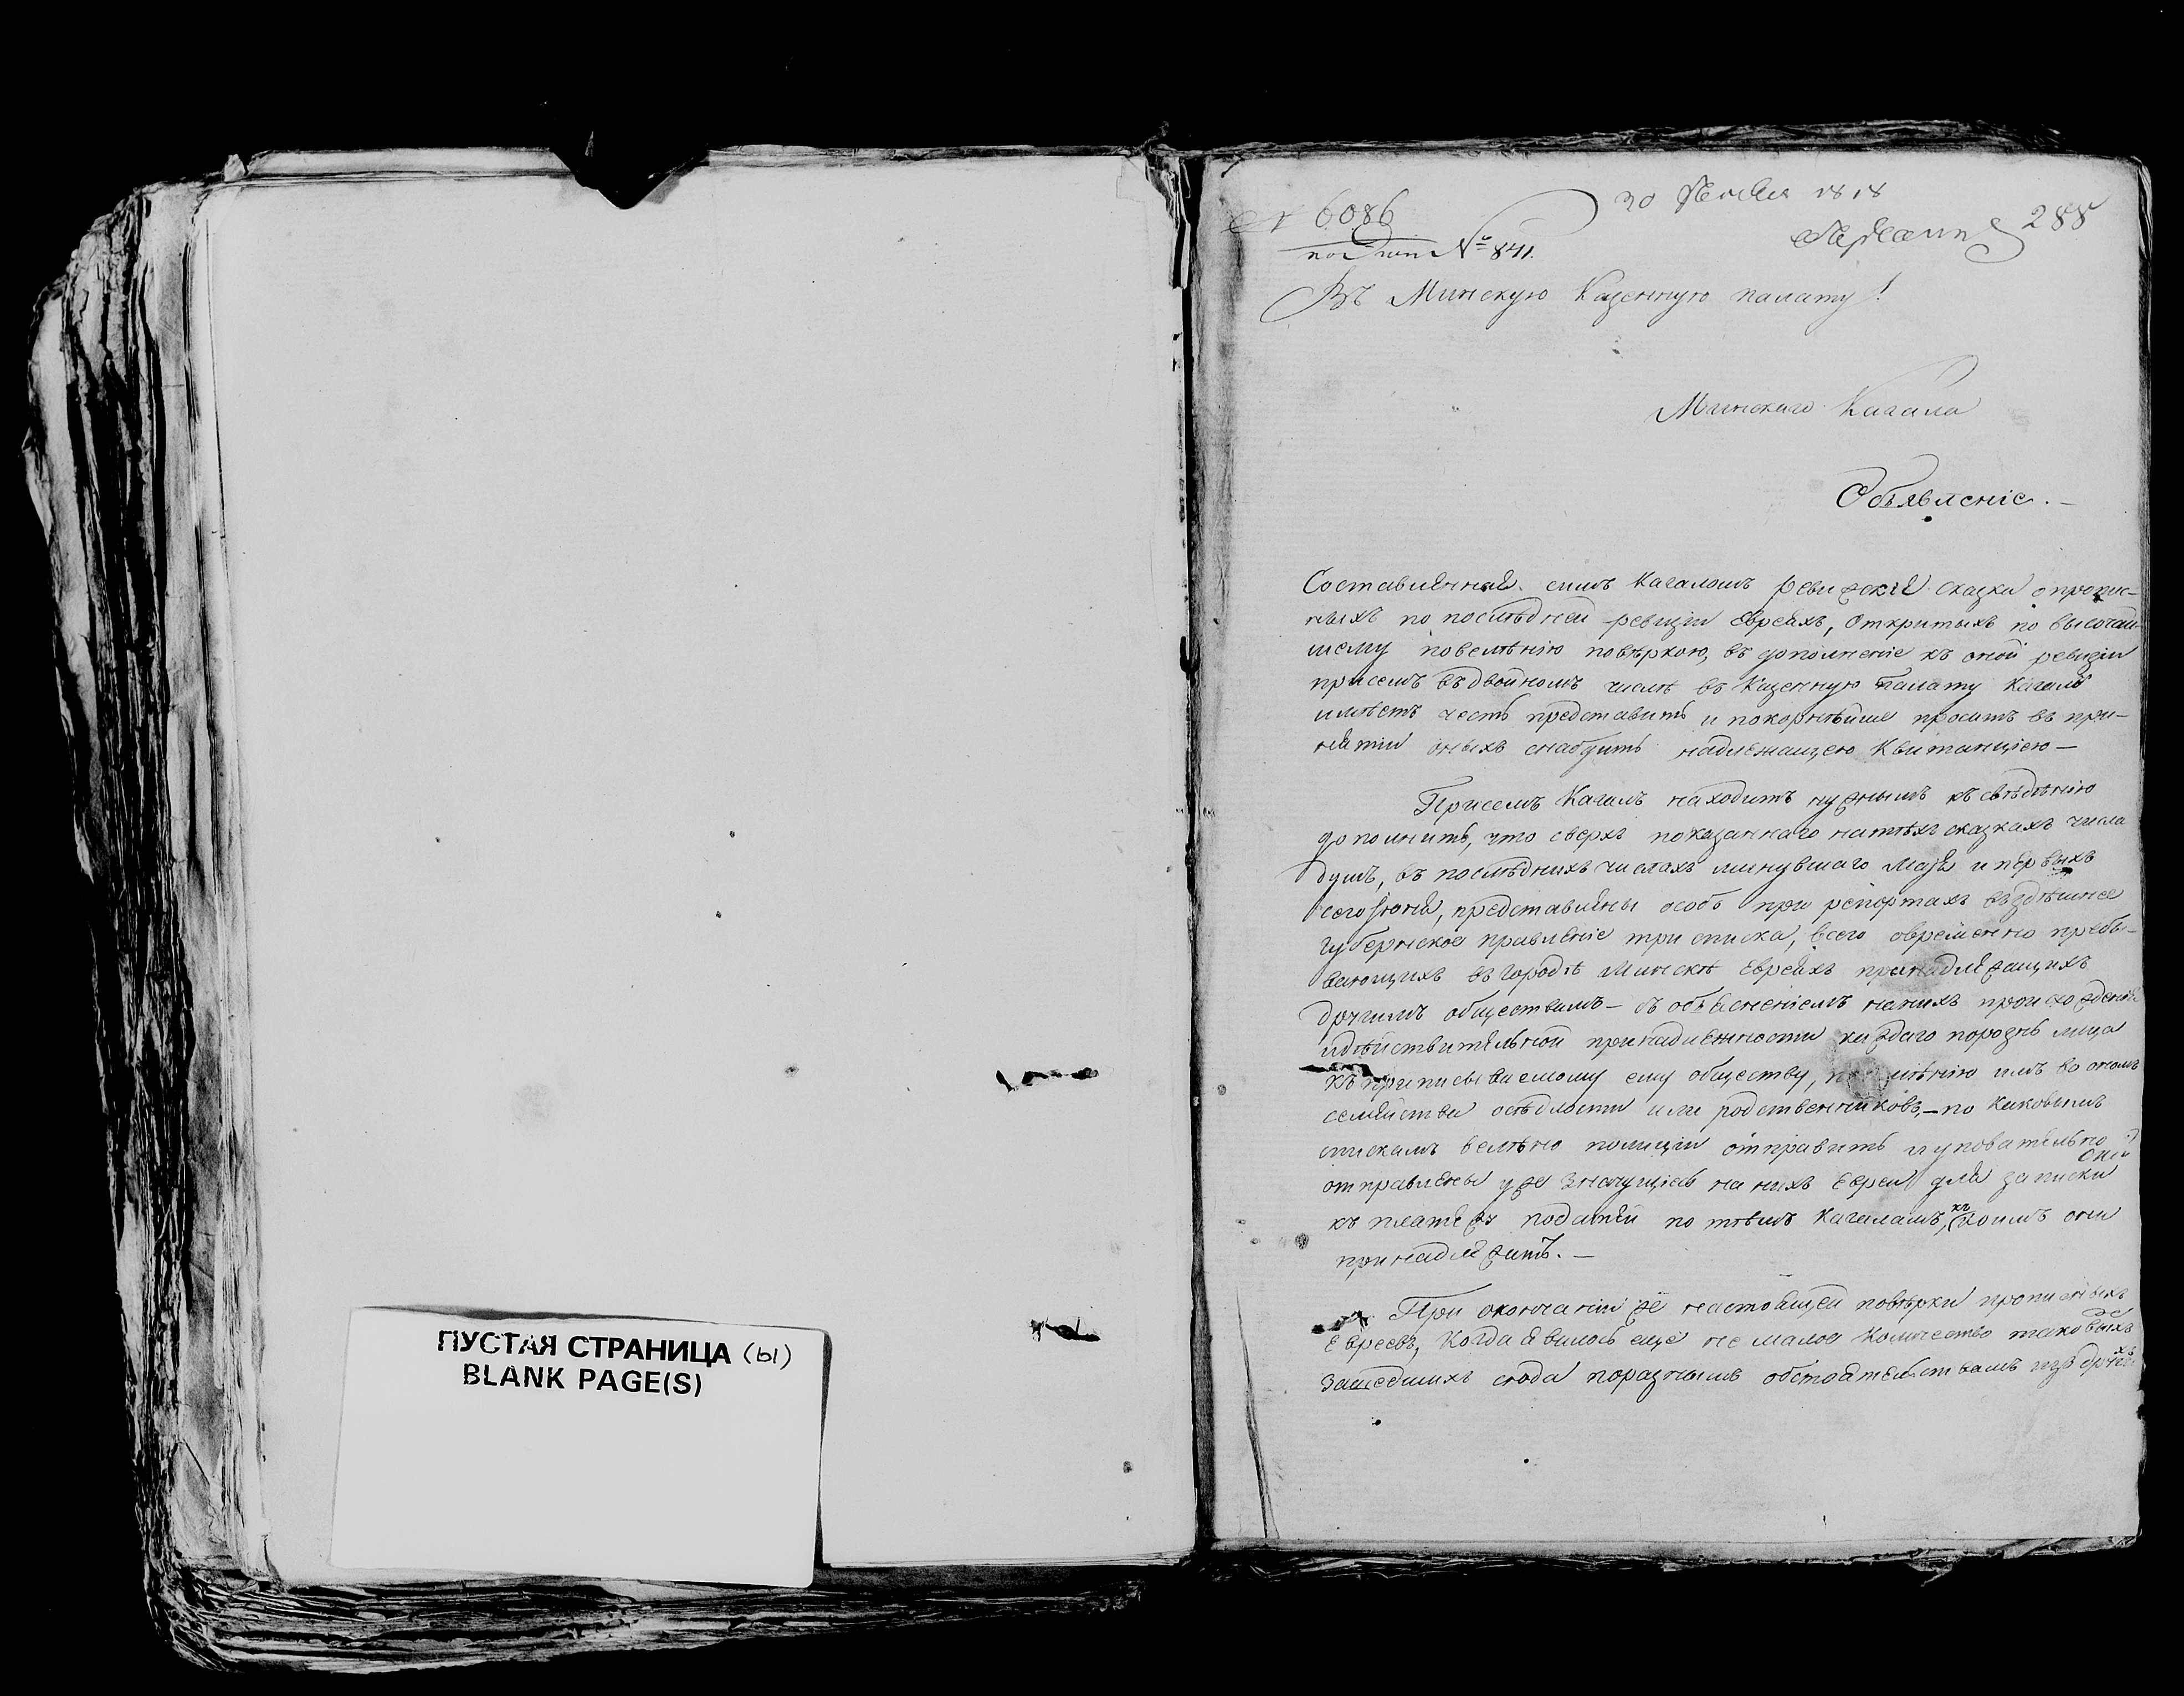 ПУСТАЯ СТРАНИЦА (ы)
BLANK PAGE(S)
30 Июня 1818
N 6086
288
№ 841.
Въ Минскую Казенную палату!
Минскаго Кагала
Объявленіе. —
Составленныя симъ Кагаломъ Ревизскія сказки о пропис-
ныхъ по послѣдней ревизіи Евреяхъ, открытыхъ по высочай-
шему повелѣнію повѣркою, въ дополненіе къ оной ревизіи
присемъ въ двойномъ числѣ въ Казенную Палату Кагалъ
имѣетъ честь представить и покорнѣйше проситъ въ при-
нятіи оныхъ снабдить надлежащею Квитанціею —
Присемъ Кагалъ находитъ нужнымъ къ свѣдѣнію
дополнить, что сверхъ показаннаго натѣхъ сказкахъ числа
душъ, въ послѣднихъ числахъ минувшаго Маія и первыхъ
сего Іюня, представлены особъ при репортахъ въ здѣшнее
губернское правленіе три списка, всего овременно пребы-
вающихъ въ городѣ Минскѣ Евреяхъ принадлежащихъ
другимъ обществамъ — съ объясненіемъ нанихъ происхожденія
идѣйствительной принадлежности каждаго порознь лица
къ приписываемому ему обществу, имѣнію имъ во ономъ
семейства осѣдлости или родственниковъ, — по каковымъ
спискамъ велѣно полиціи отправить и уповательно
отправлены уже значущіеся на нихъ Евреи для записки
къ платежу податей по тѣмъ Кагаламъ, къ коимъ они
принадлежатъ. —
При окончаніи же настоящей повѣрки прописныхъ
Евреевъ, когда явилось еще не малое количество таковыхъ же
зашедшихъ сюда поразнымъ обстоятельствамъ изъ другихъ